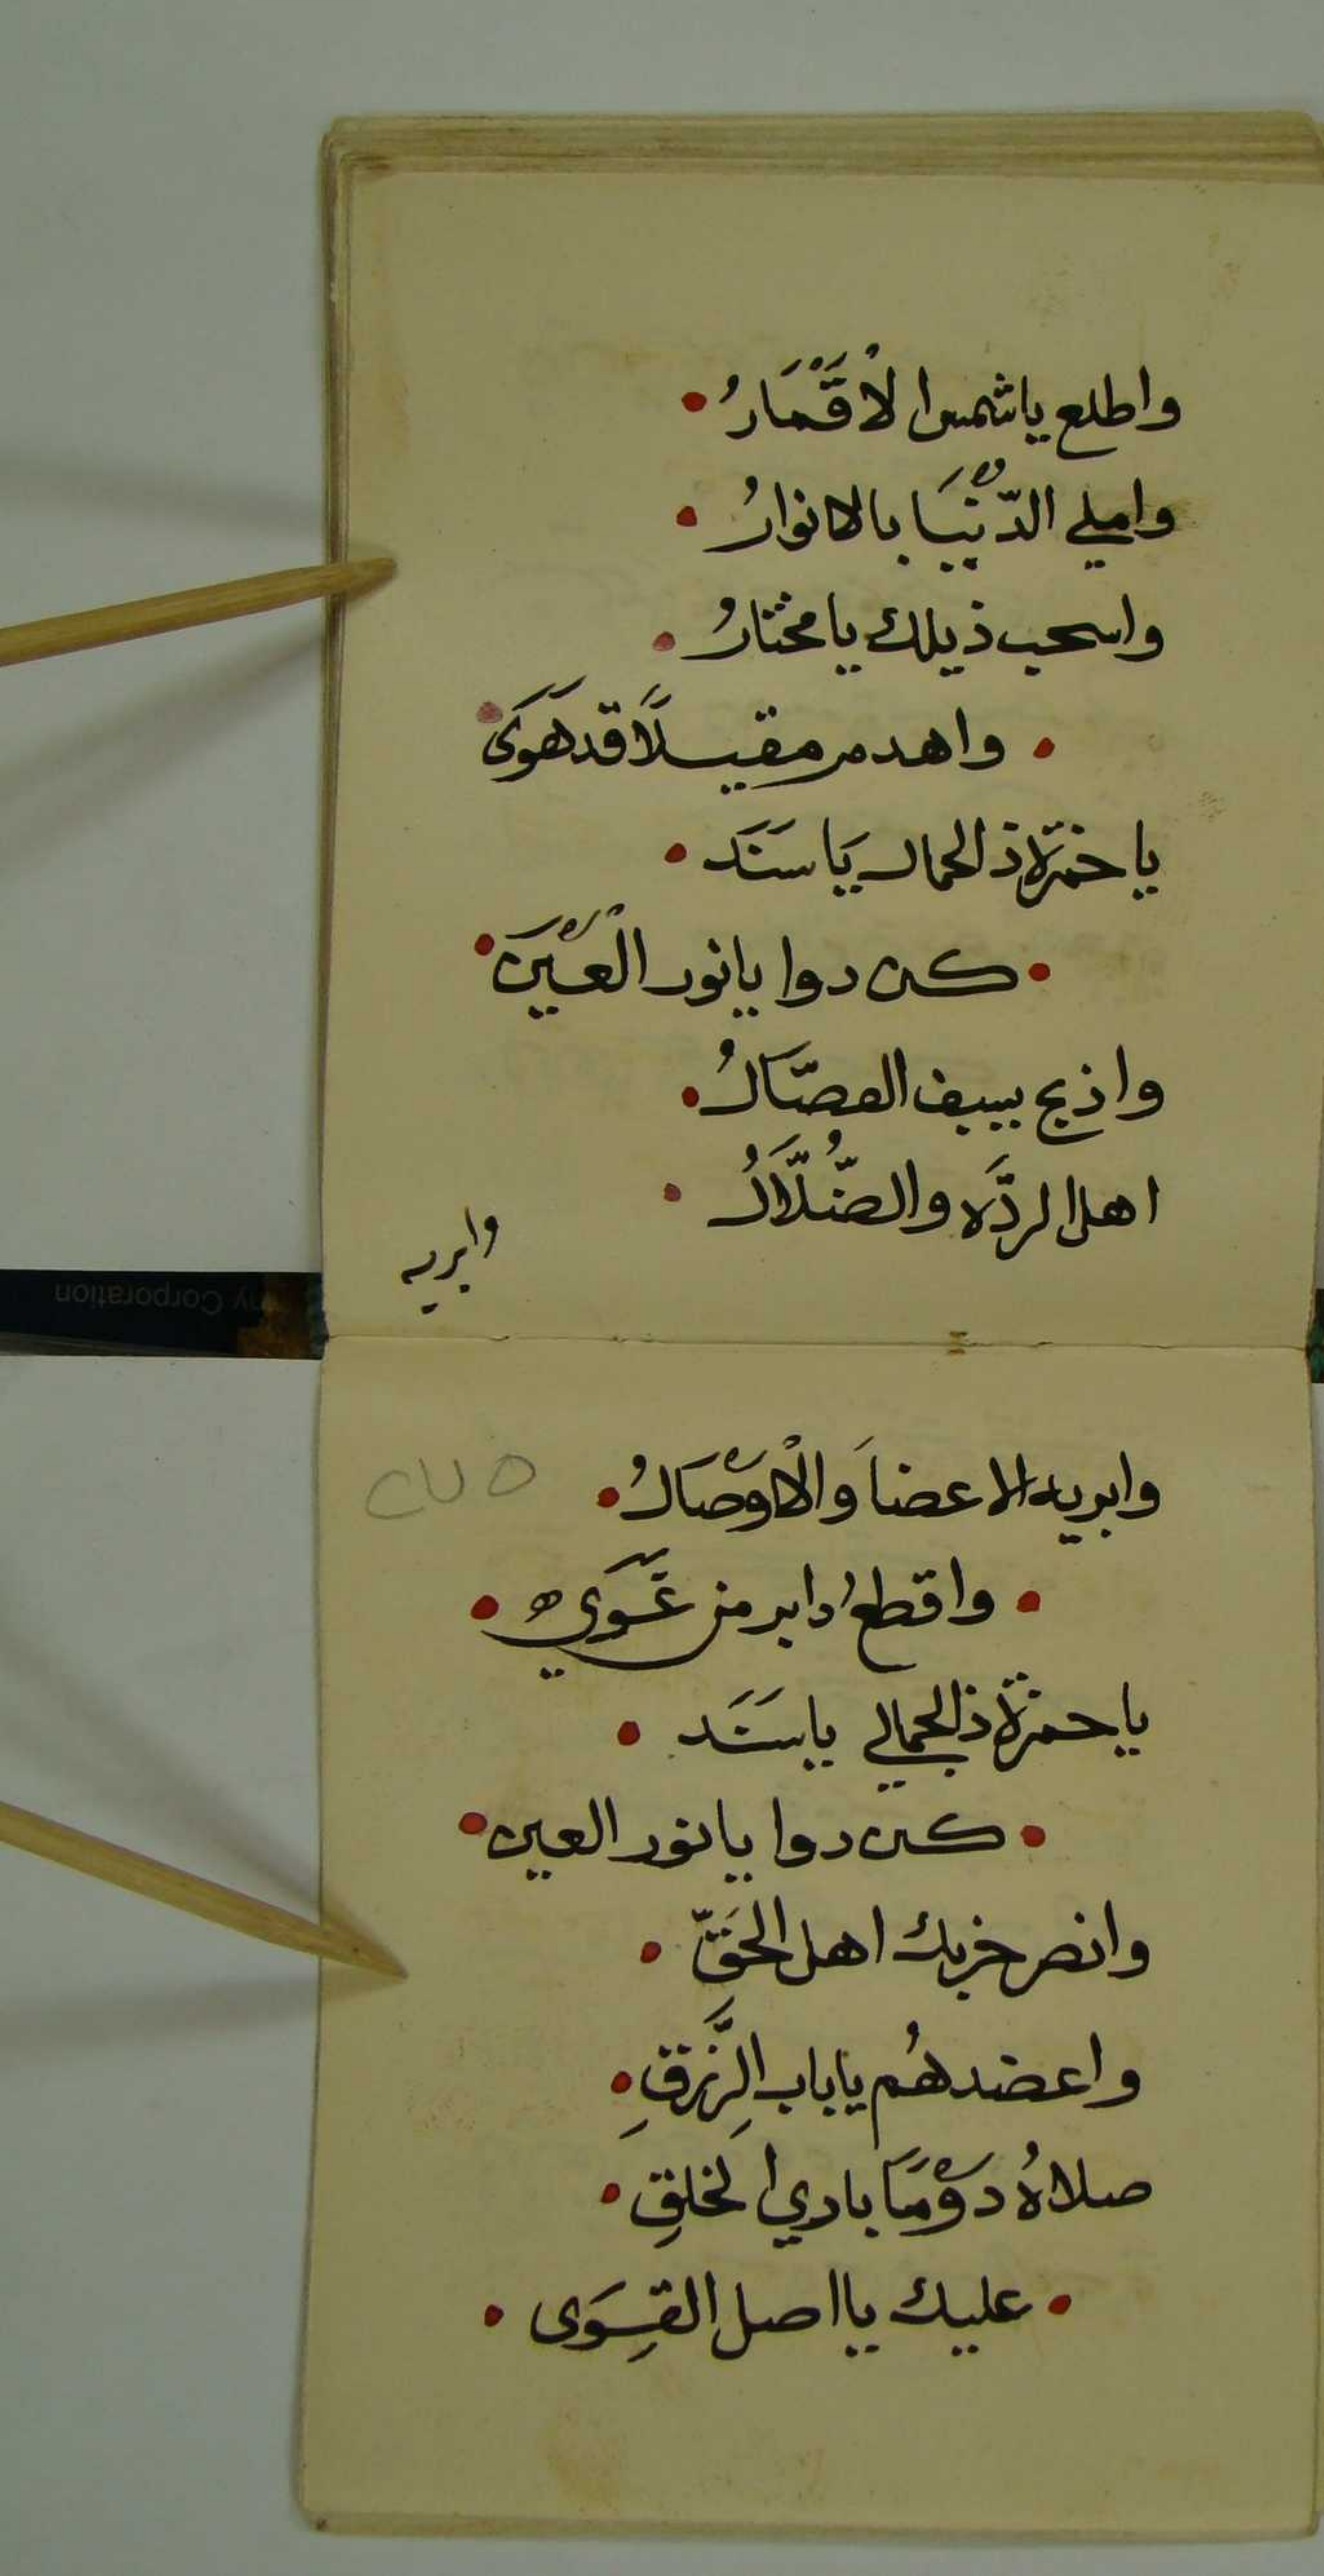 واطلع ياشمس الْاَقْمَارُ
واملي الدّنْيَا بالانوارُ
واسحب ذيلك يا مختارُ
واهدم مقيلًا قد هَوَىَ
يا حمزة ذالجمال يَا سَنَد
كن دوا يا نور الْعَيْنَ
واذبح بسيف الفصَّالُ
اهل الردَّه والضُّلَّالُ
وابريه
وابريه الاعضاَ والْاَوْصَالُ
واقطع دابر من غَوَي
يا حمزة ذالجمالي يا سَنَد
كن دوا يا نور العين
وانصر حزبك اهل الحَقّ
واعضدهُم ياباب الرَّزقِ
صلاةُ دَوْمَا باري الخلقِ
عليك يا اصل القِوَى
ny Corporation